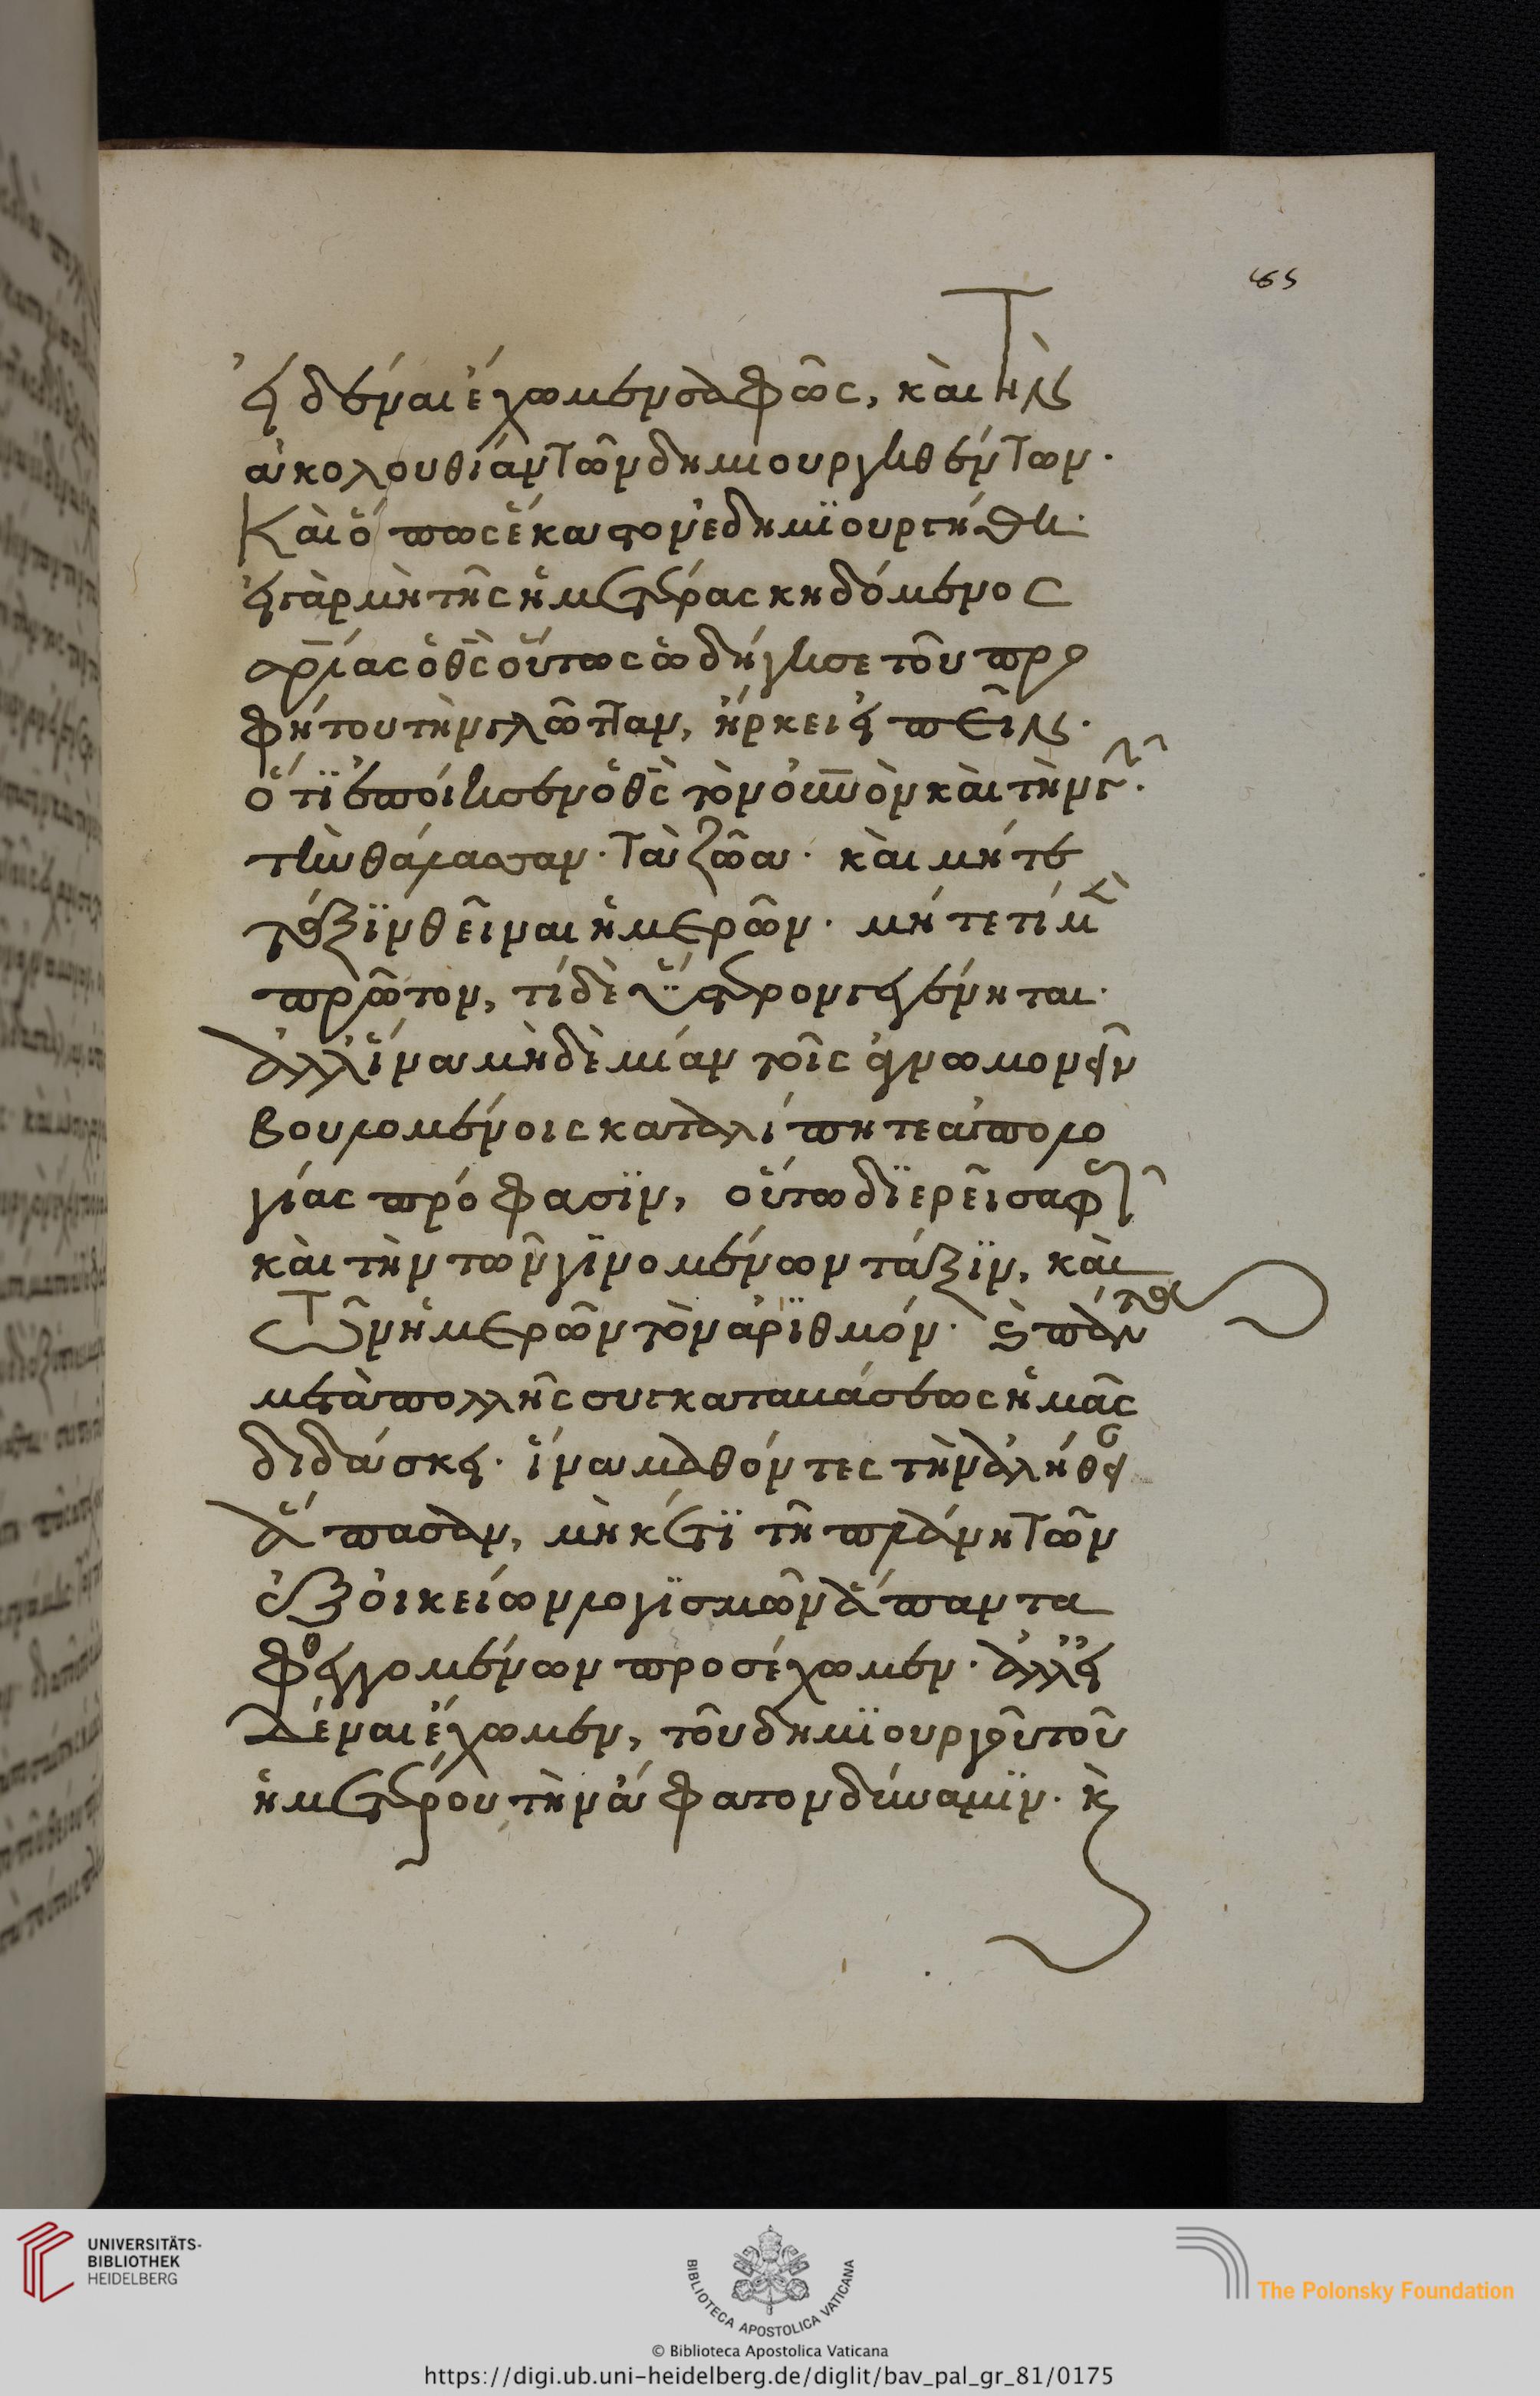 165
εἰδέναι ἔχωμεν σαφῶς, καὶ τὴν
ἀκολουθίαν τῶν δημιουργηθέντων.
Καὶ ὅπως ἕκαστον ἐδημϊουργήθη.
εἰ γὰρ μὴ τῆς ἡμετέρας κηδόμενος
σρίας ὁ θς οὕτως ὡδήγησε τοῦ προ
φήτου τὴν γλῶτταν, ἤρκει εἰπεῖν.
ὅτϊ ἐποίησεν ὁ θς τὸν οὐνὸν καὶ τὴν γῆν.
τὴν θάλασσαν. τὰ ζῶα. καὶ μήτε
τάξϊν θεῖναι ἡμερῶν. μήτε τί μὲν
πρῶτον, τί δὲ ὕστερον γεγένηται.
ἀλλ' ἵνα μὴδὲμίαν τοῖς ἀγνωμονεῖν
βουλομένοις καταλίπητε ἀπολο
γίας πρόφασϊν, οὕτω δϊερεῖ σαφῶς
καὶ τὴν τῶν γϊνομένων τάξϊν, καὶ
τῶν ἡμερῶν τὸν ἀρϊθμόν. καὶ πάντα
μετὰ πολλῆς συγκαταβάσεως ἡμᾶς
διδάσκει. ἵνα μαθόντες τὴν ἀλήθειαν
ἅπασαν, μὴκέτϊ τῆ πλάνη τῶν
ἐξ οἰκείων λογϊσμῶν ἅπαντα
φθεγγομένων προσέχωμεν. ἀλλ' εἰ
δέναι ἔχωμεν, τοῦ δημϊουργοῦ τοῦ
ἡμετέρου τὴν ἄφατον δύναμϊν. κὶ
UNIVERSITÄTS-
BIBLIOTHEK
HEIDELBERG
BIBLIOTECA APOSTOLICA VATICANA
The Polonsky Foundation
© Biblioteca Apostolica Vaticana
https://digi.ub.uni-heidelberg.de/diglit/bav_pal_gr_81/0175